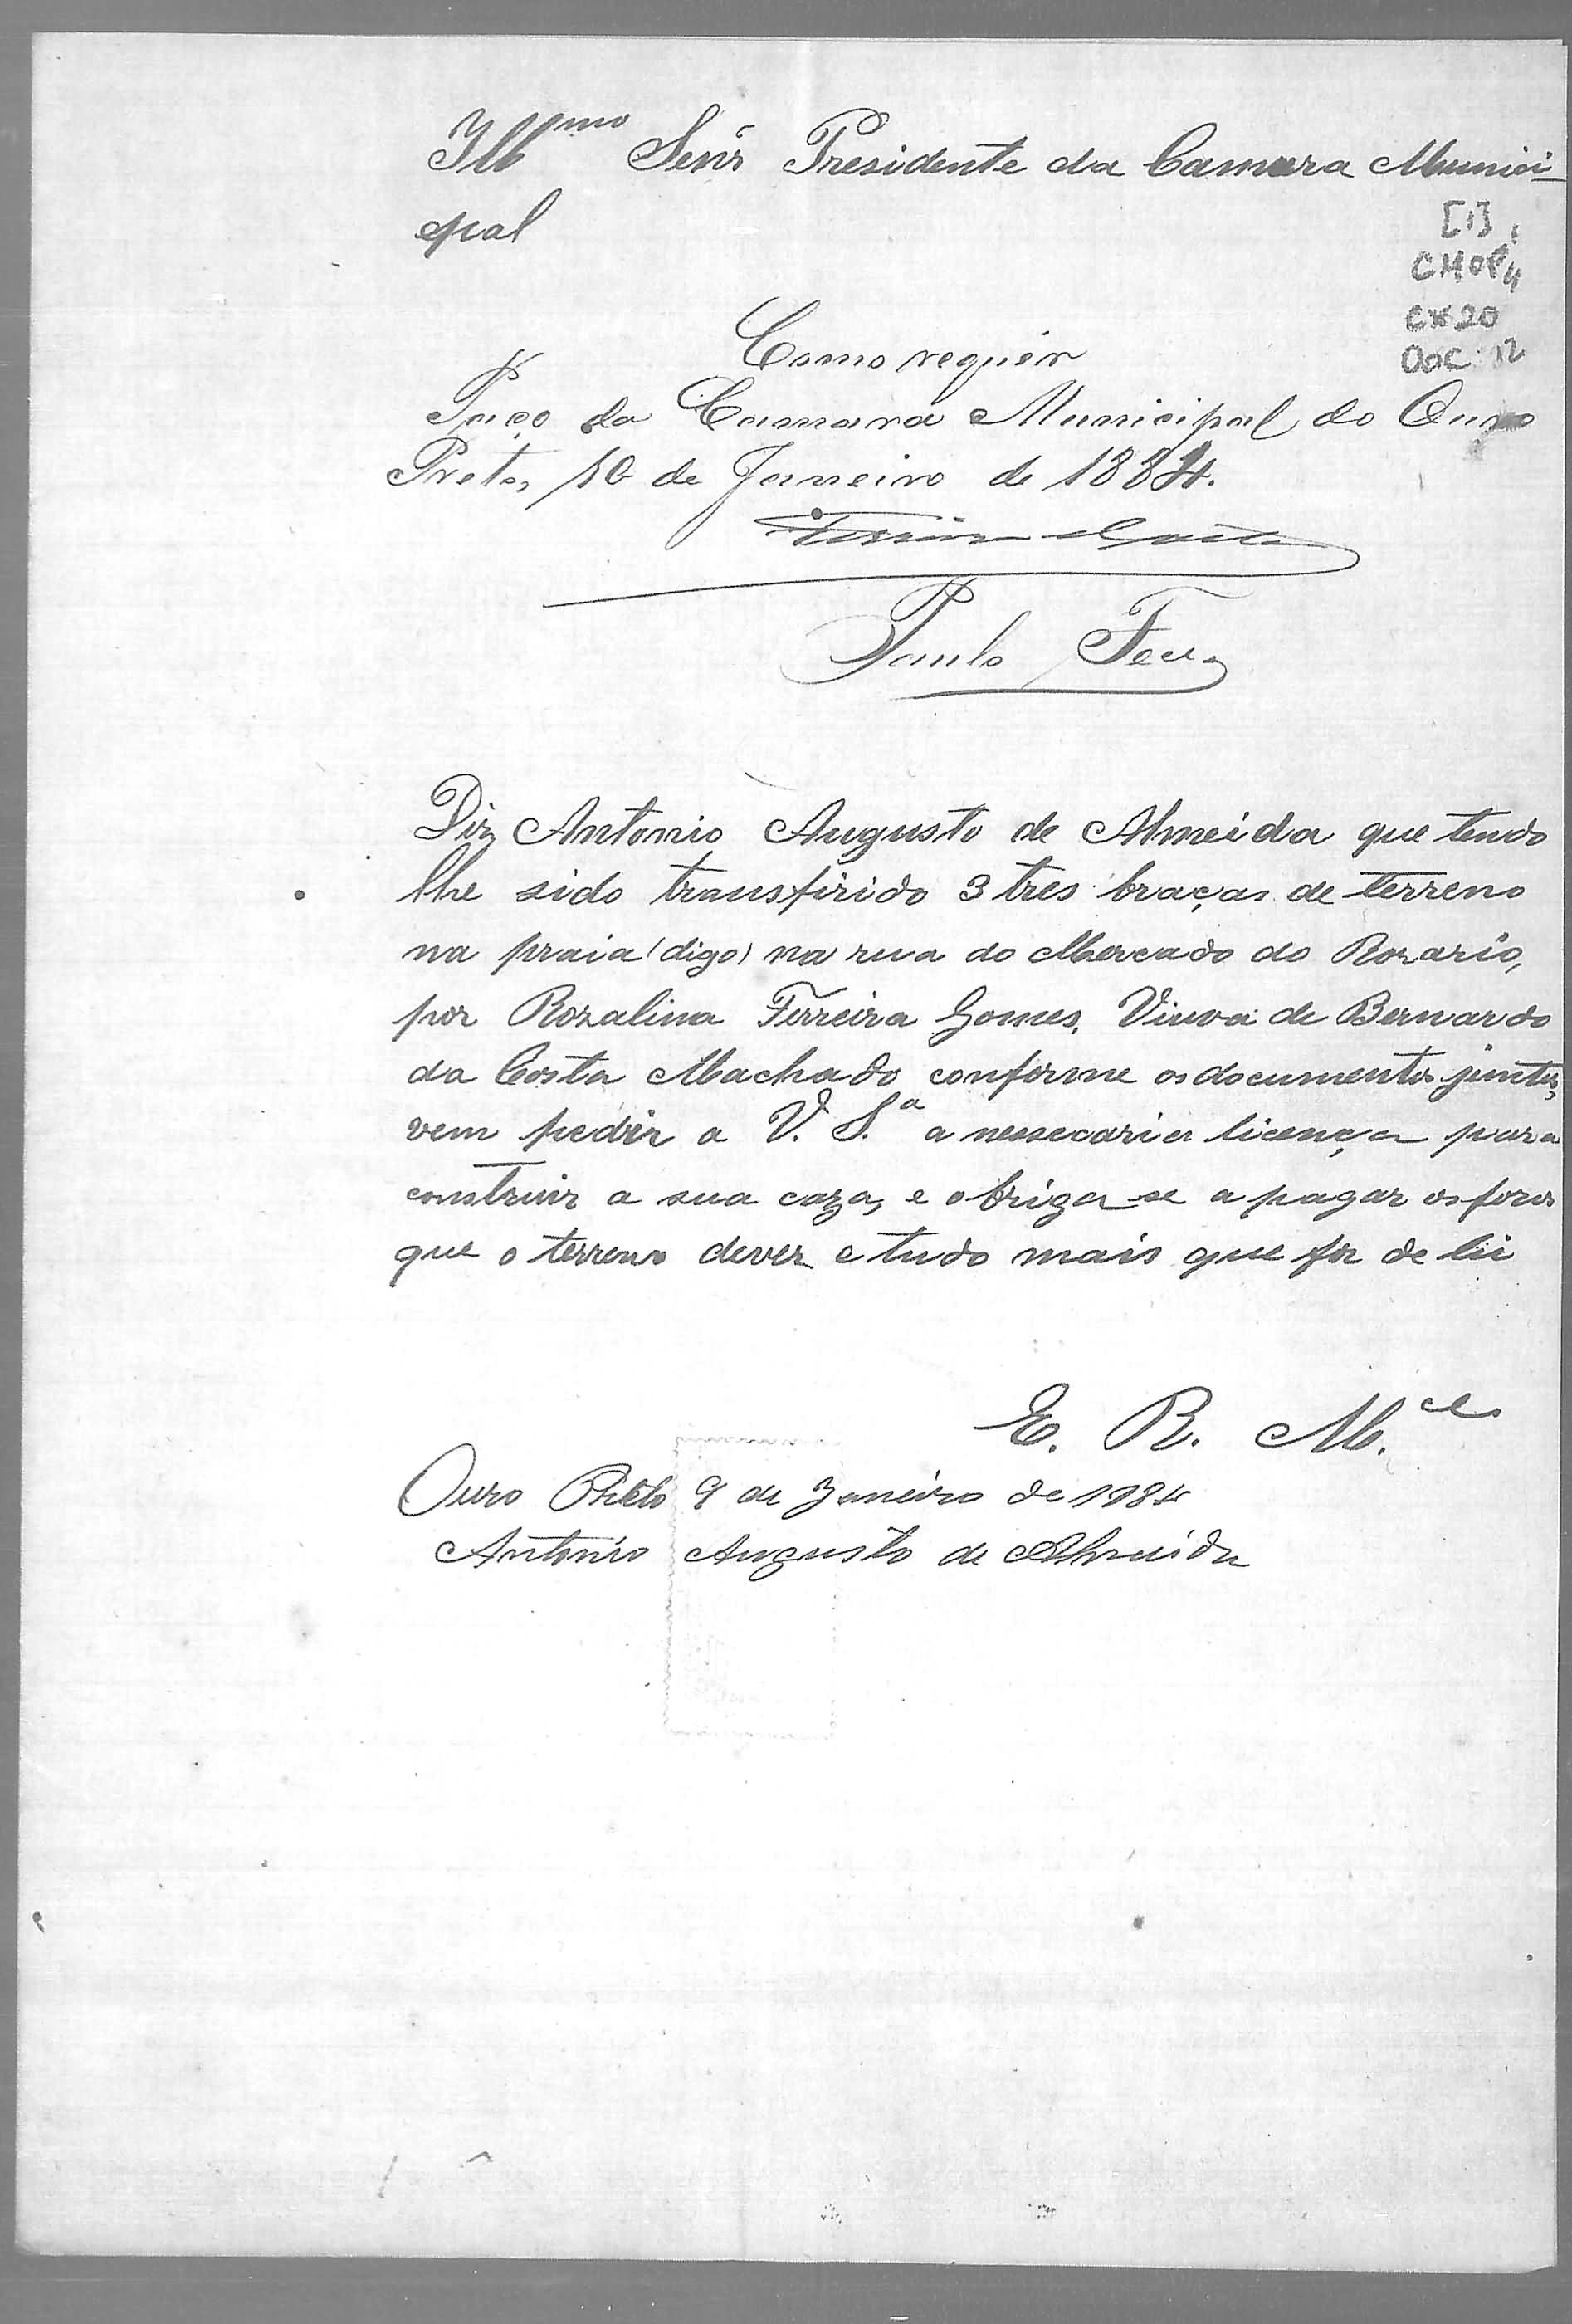 Illmo Senr Presidente da Camara Munici-
pal
[1]
CMOP
CX 20
DOC: 12
Como requer
Paço da Camara Municipal do Ouro
Preto, 10 de Janeiro de 1884.
Paulo Feu
Diz Antonio Augusto de Almeida que tendo
lhe sido transfirido 3 tres braças de terreno
na praia (digo) na rua do Mercado do Rozario,
por Rozalina Ferreira Gomes, Viuva de Bernardo
da Costa Machado conforme os documentos juntos,
vem pedir a V. S.a a nessecaria licença para
construir a sua caza, e obriga-se a pagar os foros
que o terreno dever e tudo mais que for de lei
E. R. M.ce
Ouro Preto 9 de Janeiro de 1884
Antonio Augusto de Almeida